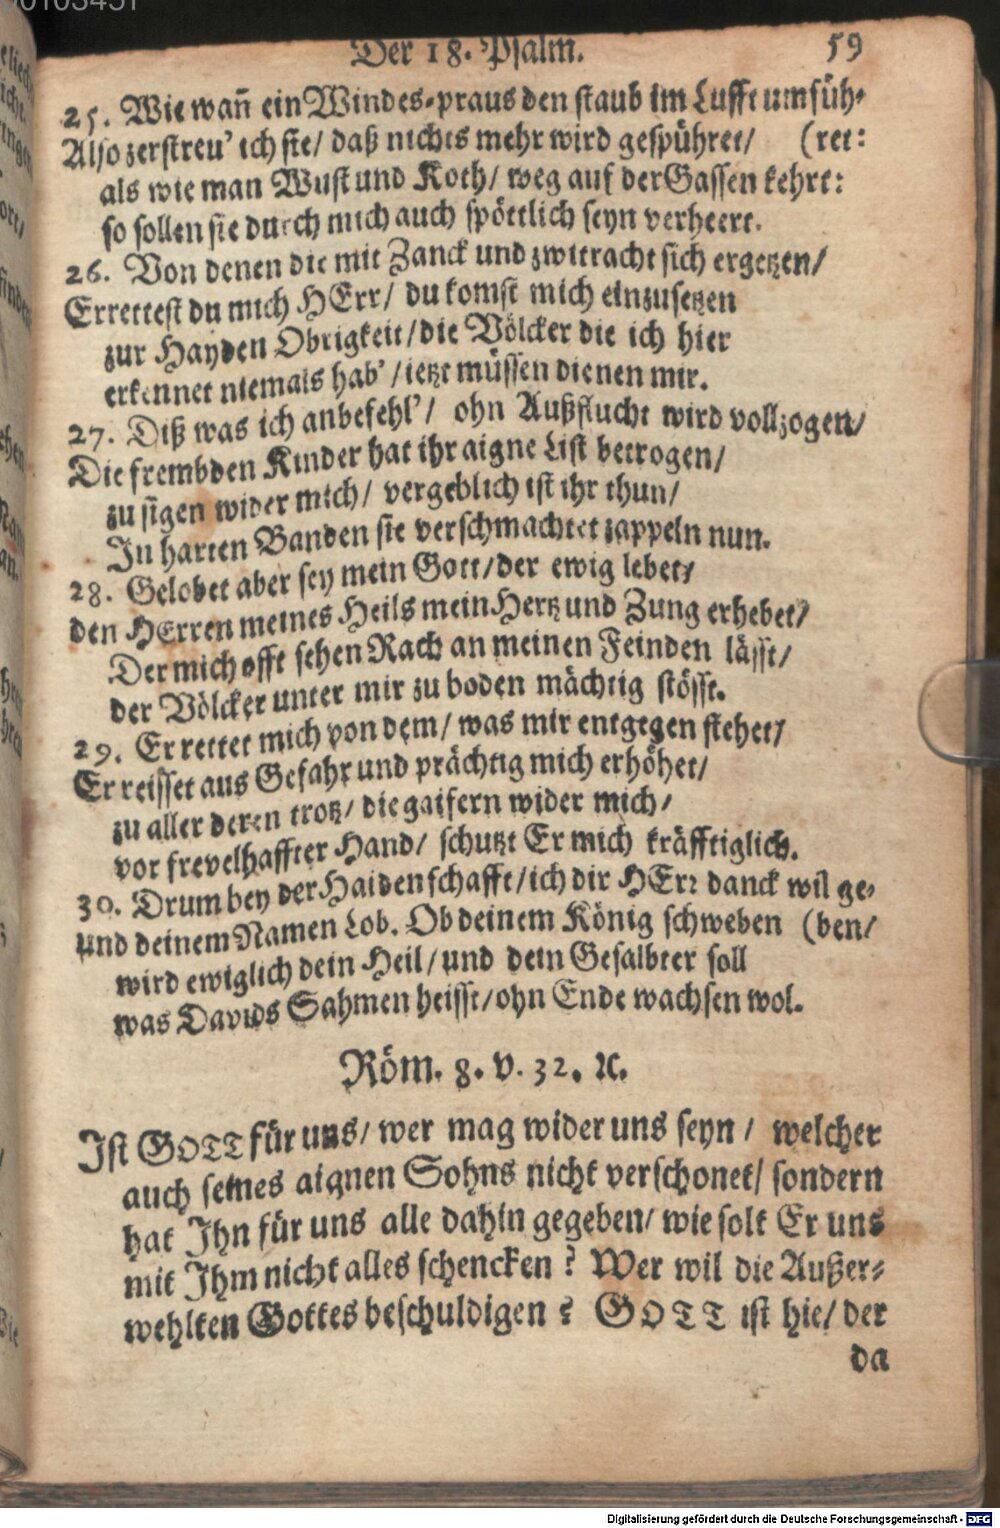 00103451
Der 18. Psalm. 59
25. Wie wañ ein Windes-praus den staub im Lufft umsüh-
Also zerstreu' ich sie/ daß nichts mehr wird gespühret/ (ret:
als wie man Wust und Koth/ weg auf der Gassen kehrt:
so sollen sie durch mich auch spöttlich seyn verheert.
26. Von denen die mit Zanck und zwitracht sich ergetzen/
Errettest du mich HErr/ du komst mich einzusetzen
zur Hayden Obrigkeit/ die Völcker die ich hier
erkennet niemals hab'/ ietzt müssen dienen mir.
27. Diß was ich anbefehl'/ ohn Außflucht wird vollzogen/
Die frembden Kinder hat ihr aigne List betrogen/
zu sigen wider mich/ vergeblich ist ihr thun/
In harten Banden sie verschmachtet zappeln nun.
28. Gelobet aber sey mein Gott/ der ewig lebet/
den HErren meines Heils mein Hertz und Zung erhebet/
Der mich offt sehen Rach an meinen Feinden lässt/
der Völcker unter mir zu boden mächtig stösst.
29. Er rettet mich von dem/ was mir entgegen stehet/
Er reisset aus Gefahr und prächtig mich erhöhet/
zu aller deren trotz/ die gaifern wider mich/
vor frevelhaffter Hand/ schutzt Er mich kräfftiglich.
30. Drum bey der Haidenschafft/ ich dir HErr danck wil ge-
und deinem Namen Lob. Ob deinem König schweben (ben/
wird ewiglich dein Heil/ und dein Gesalbter soll
was Davids Sahmen heisst/ ohn Ende wachsen wol.
Röm. 8. v. 32. ꝛc.
Ist GOTT für uns/ wer mag wider uns seyn/ welcher
auch seines aignen Sohns nicht verschonet/ sondern
hat Ihn für uns alle dahin gegeben/ wie solt Er uns
mit Ihm nicht alles schencken? Wer wil die Außer-
wehlten Gottes beschuldigen? GOTT ist hie/ der
da
Digitalisierung gefördert durch die Deutsche Forschungsgemeinschaft - DFG